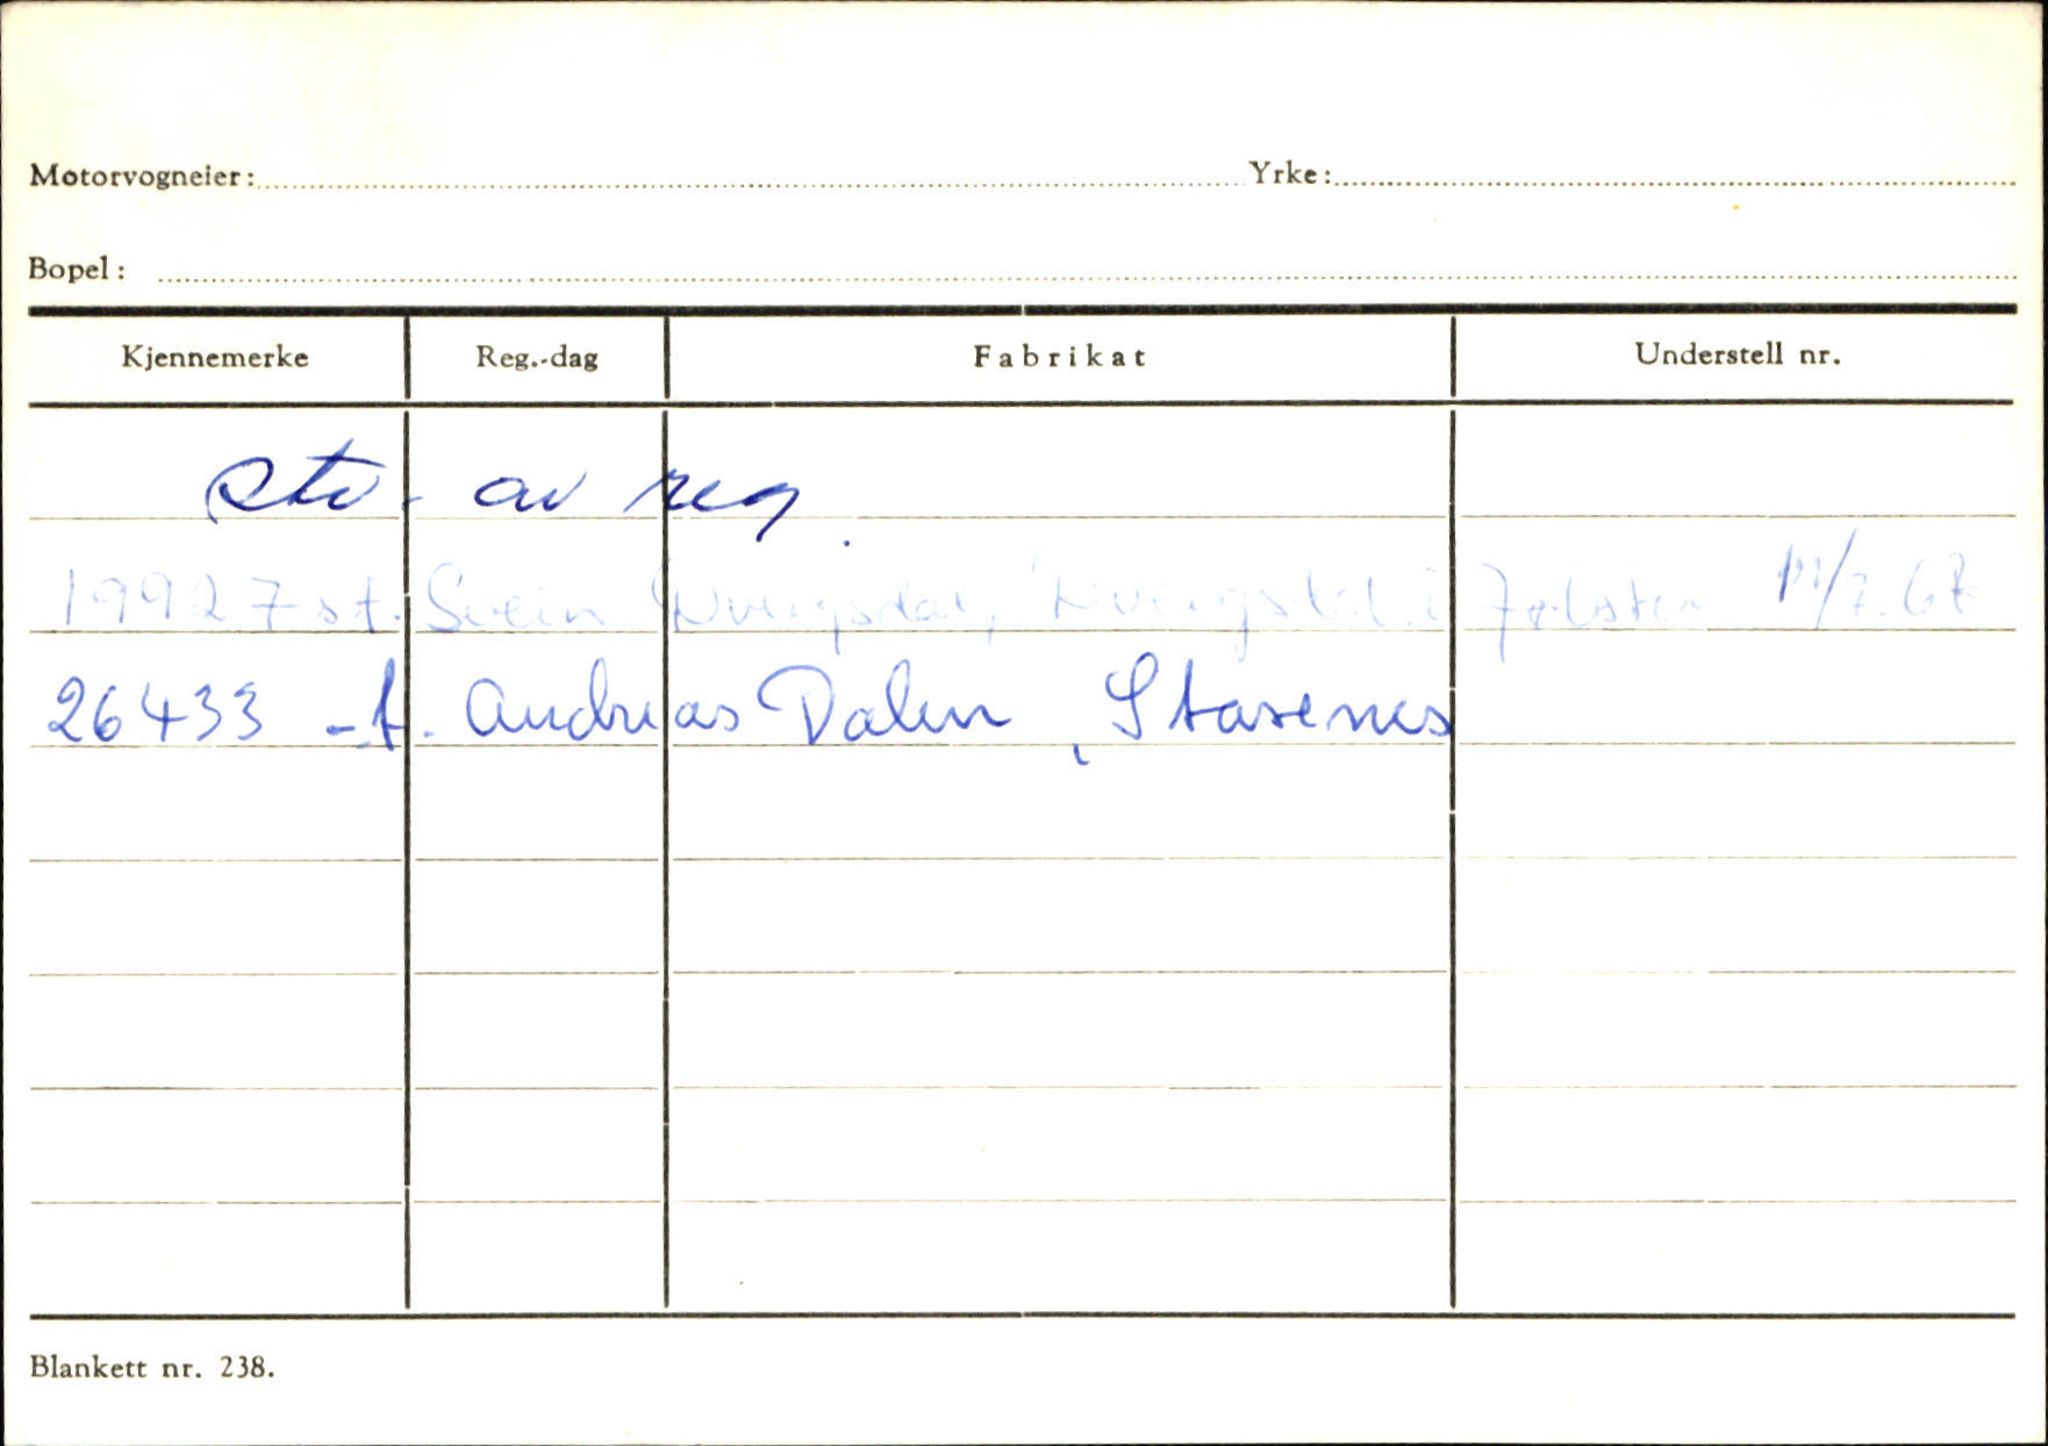 Motorvogneier: Yrke:
Bopel:
Kjennemerke Reg.-dag Fabrikat Understell nr.
av reg.
19927 st. Svein i Jølster /7.67
26433 -t. Andreas Dalen, Stavenes
Blankett nr. 238.